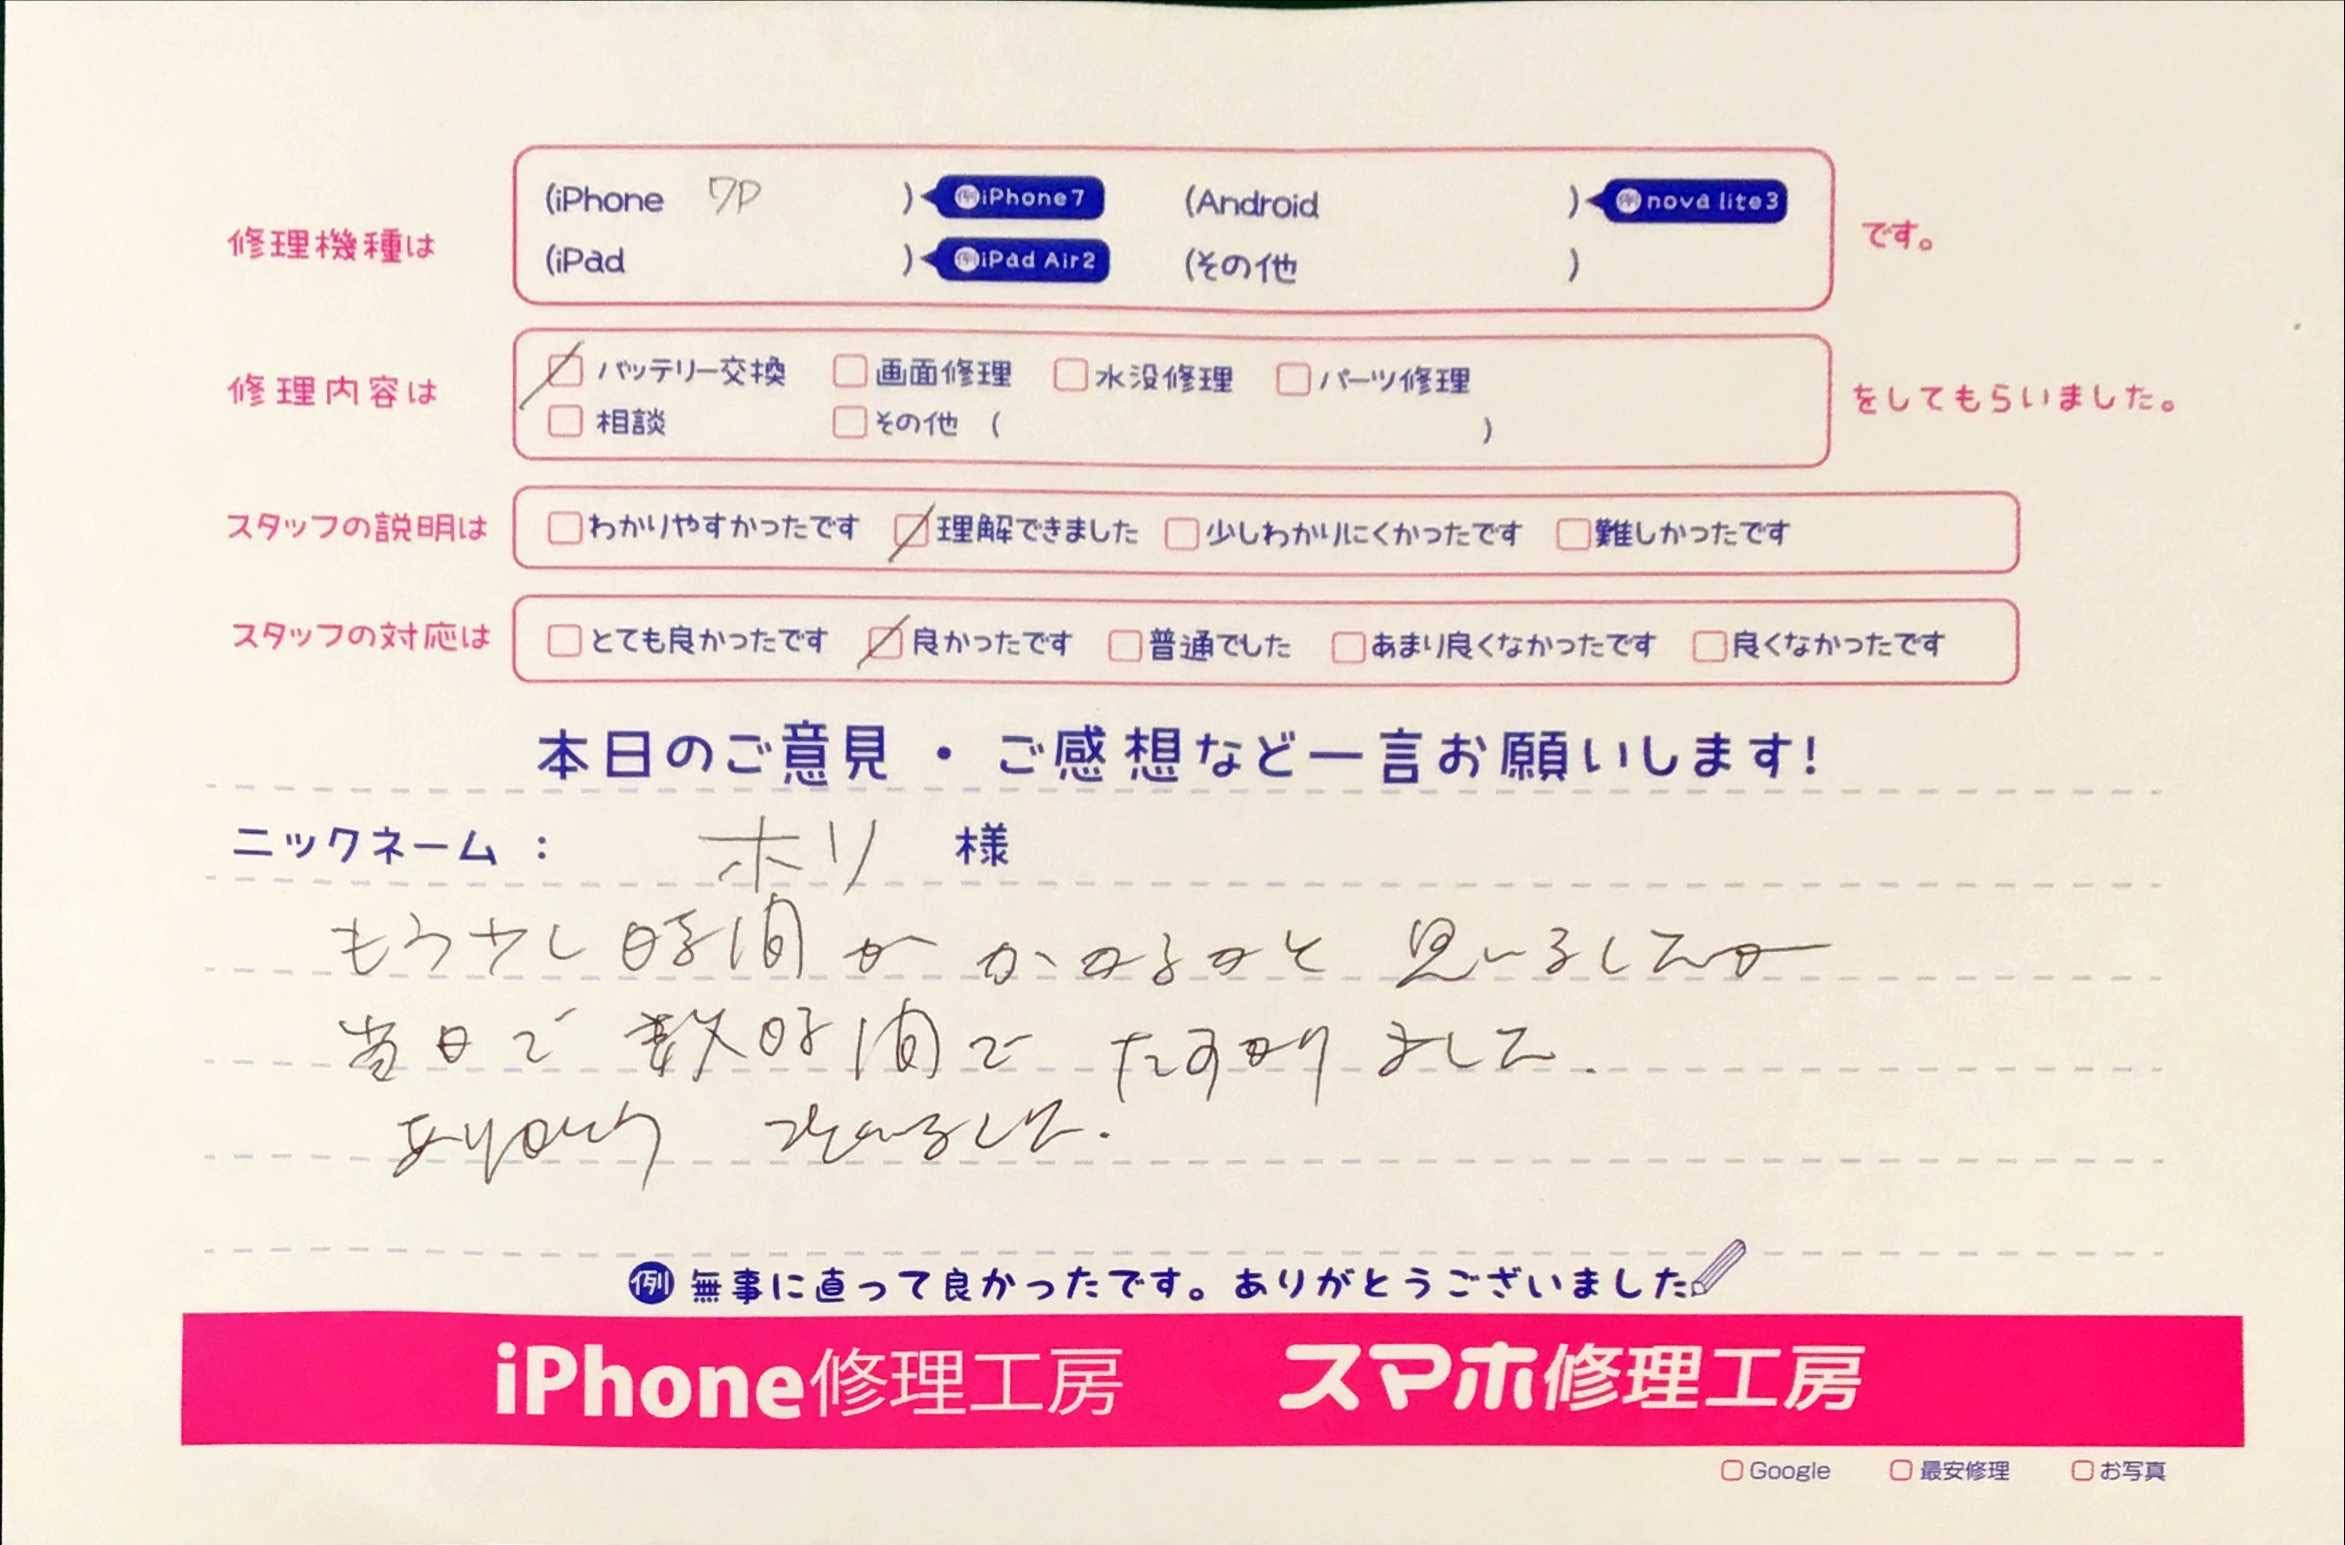 修理機種は (iPhone 7P ) 例iPhone7 (Android ) 例nova lite3 です。
(iPad ) 例iPad Air2 (その他 )
修理内容は バッテリー交換 画面修理 水没修理 パーツ修理 をしてもらいました。
相談 その他 ( )
スタッフの説明は わかりやすかったです 理解できました 少しわかりにくかったです 難しかったです
スタッフの対応は とても良かったです 良かったです 普通でした あまり良くなかったです 良くなかったです
本日のご意見・ご感想など一言お願いします!
ニックネーム : ホリ 様
もう少し時間が かかるかと 思いましたが
当日で 数時間で たすかりました.
ありがとう ございました.
例 無事に直って良かったです。ありがとうございました
iPhone修理工房 スマホ修理工房
Google 最安修理 お写真